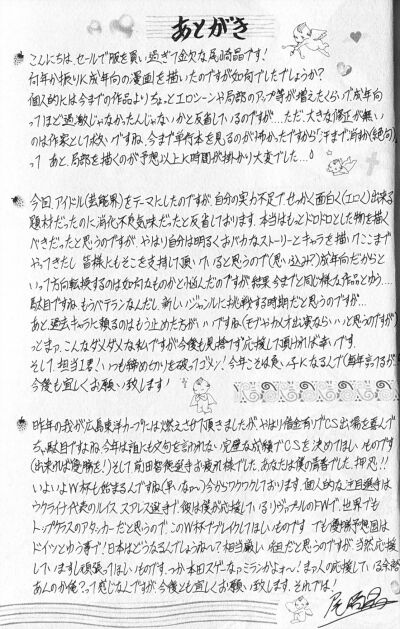 あとがき
こんにちは、セールで服を買い過ぎて金欠な尾崎晶です!
何年か振りに成年向の漫画を描いたのですが如何でしたでしょうか?
個人的には今までの作品よりちょっとエロシーンや局部のアップ等が増えたくらいで成年向
ってほど過激じゃなかったんじゃないかと反省しているのですが…ただ、大きな修正が無い
のは作家として救いですね、今まで単行本を見るのが怖かったですから「汗まで
って あと、局部を描くのが予想以上に時間が掛かり大変でした…。
今回、アイドル(芸能界)をテーマにしたのですが、自分の実力不足で、せっかく面白く(エロく)出来る
題材だったのに消化不良気味だったと反省しております、本当はもっとドロドロとした物を描く
べきだったと思うのですが、やはり自分は明るくおバカなストーリーとキャラを描いてここまで
やってきたし 皆様にもそこを支持して頂いていると思うので(思い込み?)成年向だからと
いって方向転換するのは如何なものかと悩んだのですが結果、今までと同じ様な作品とゆう…
駄目ですね、もうベテランなんだし、新しいジャンルに挑戦する時期だと思うのですが…
あと過去キャラに頼るのはもう止めた方がいいですね(モブやカメオ出演ならいいと思うのですが)
っとまっ、こんなダメダメな私ですが今後も見捨てず応援して頂ければ幸いです。
そして、担当I君!いつも締め切りを破ってゴメン!今年こそは良い子になるんで(毎年言ってるが)
今後も宜しくお願い致します!
昨年の我が広島東洋カープには燃えさせて頂きましたが、やはり借金有りでCS出場を喜んで
ちゃ駄目ですよね、今年は誰にも文句を言われない完璧な成績でCSを決めてほしいものです
(出来れば優勝を!)そして前田智徳選手お疲れ様でした、あなたは僕の青春でした、押忍!!
いよいよW杯も始まるんですね(早いな~)今からワクワクしております、個人的な注目選手は
ウクライナ代表のルイス スアレス選手で、彼は僕が応援しているリヴァプールのFWで、世界でも
トップクラスのアタッカーだと思うので、このW杯でブレイクしてほしいものです でも優勝予想国は
ドイツとゆう事で!日本はどうなるんでしょうね~?相当厳しい組だと思うのですが、当然応援
していますし頑張ってほしいものです、つか本田スゲーなっミランかよォ~!まっ、人の応援している余裕
あんのか俺?って感じなんですが、今後とも宜しくお願い致します、それでは!
尾崎晶